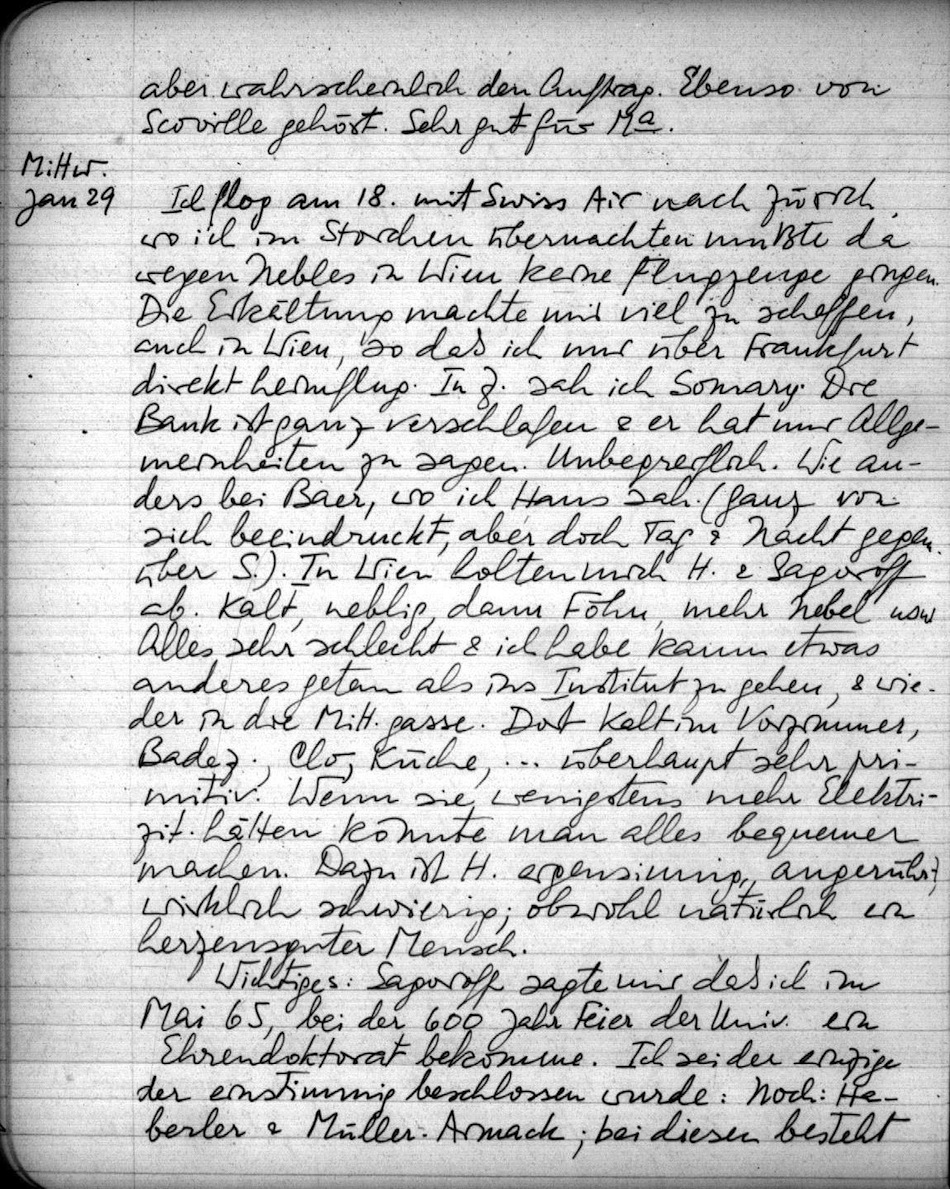 aber wahrscheinlich den Auftrag. Ebenso von
Scoville gehört. Sehr gut für Ma.
Mittw.
Jan 29 Ich flog am 18. mit Swiss Air nach Zürich,
wo ich im Storchen übernachten mußte da
wegen Nebles in Wien keine Flugzeuge gingen.
Die Erkältung machte mir viel zu schaffen,
auch in Wien, so daß ich nur über Frankfurt
direkt heimflug. In Z. sah ich Somary. Die
Bank ist ganz verschlafen & er hat nur Allge-
meinheiten zu sagen. Unbegreiflich. Wie an-
ders bei Baer, wo ich Hans sah. (ganz von
sich beeindruckt, aber doch Tag & Nacht gegen-
über S.). In Wien holten mich H. & Sagoroff
ab. Kalt, neblig, dann Föhn, mehr Nebel usw
Alles sehr schlecht & ich habe kaum etwas
anderes getan als ins Institut zu gehen, & wie-
der in die Mitt.gasse. Dort kalt im Vorzimmer,
Badez., Clo, Küche, ... überhaupt sehr pri-
mitiv. Wenn sie wenigstens mehr Elektri-
zit. hätten könnte man alles bequemer
machen. Dazu ist H. eigensinnig, angerührt,
wirklich schwierig; obwohl natürlich ein
herzensguter Mensch.
Wichtiges: Sagoroff sagte mir daß ich im
Mai 65, bei der 600 Jahr Feier der Univ. ein
Ehrendoktorat bekomme. Ich sei der einzige
der einstimmig beschlossen wurde: Noch: Ha-
berler & Müller-Armack; bei diesen besteht